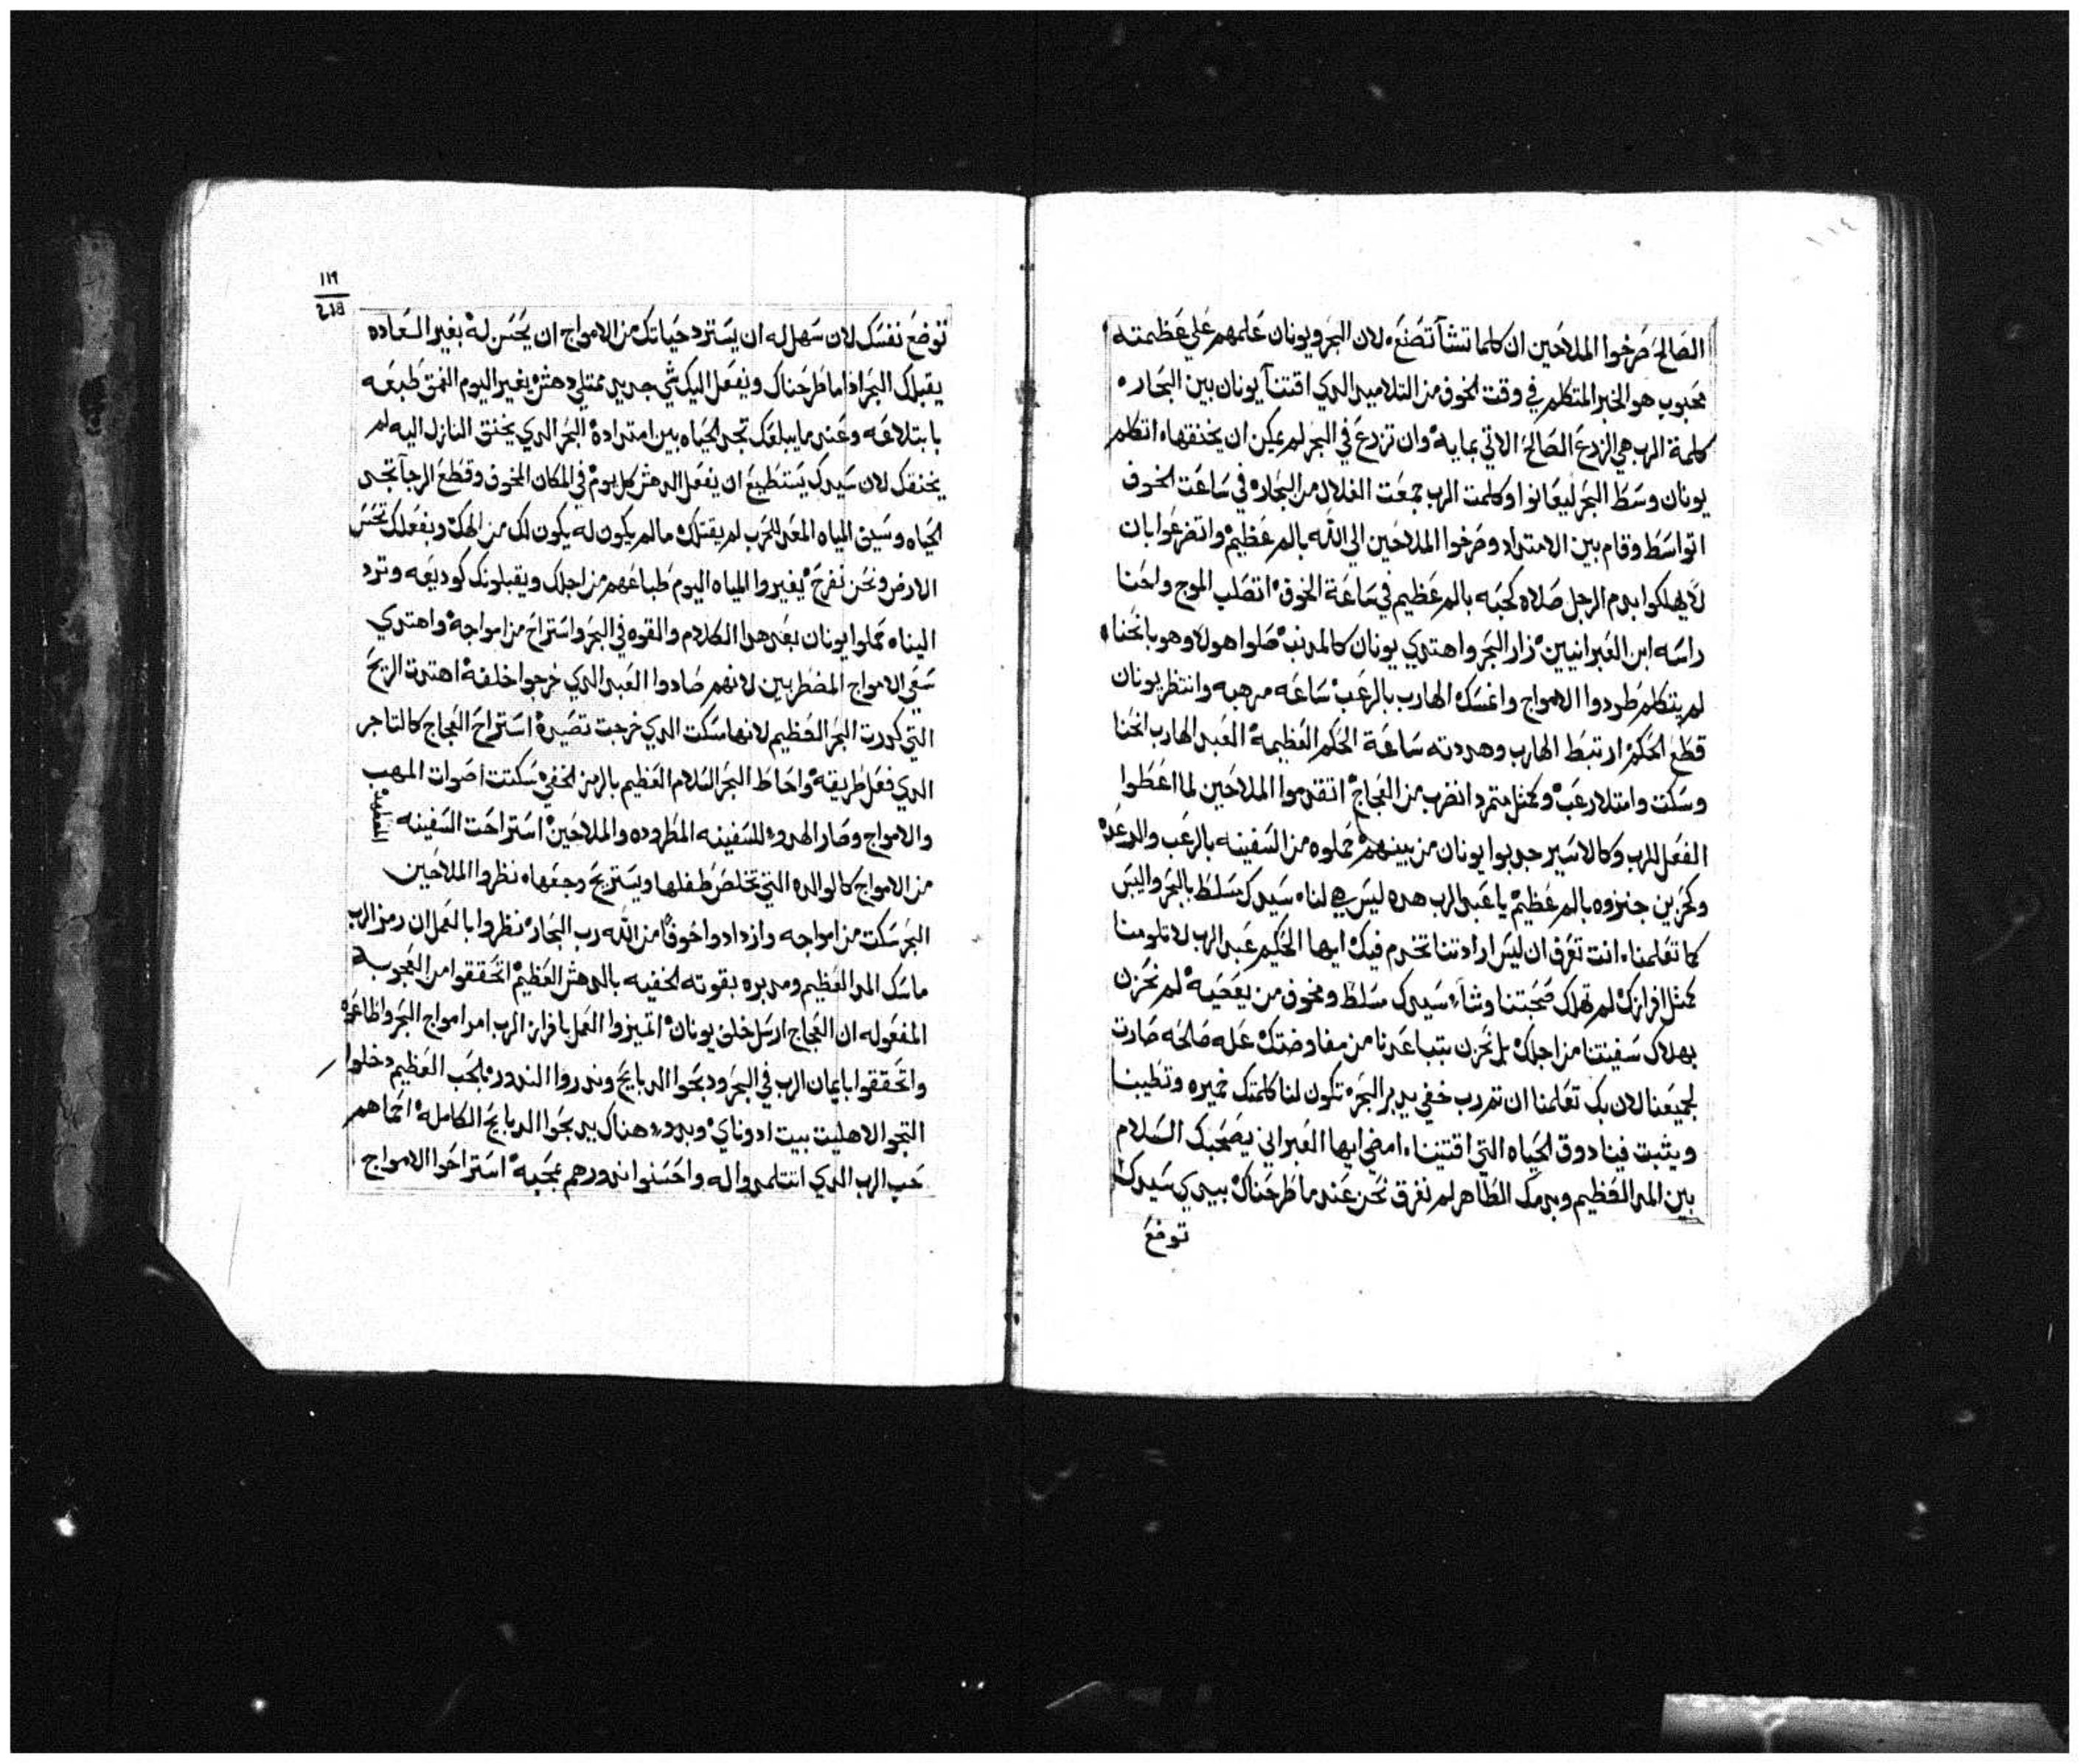 ١١٤
الصَالحَ صَرخوا الملاحَين ان كلما تشآ تصَنعَ، لان البحَر ويونان عَلمهم علي عَظمته
محَبوب هو الخبر المتكلم في وقت الخوف من التلاميد الدي اقتنآ يونان بين البحَاره
كلمة الرب هي الزرعَ الصَالحَ الاتي بمايهْ وان تزدعَ في البحَر لم يمكن ان يخنقها، اتكلم
يونان وسَط البحَر ليعَانوا وكلمت الرب جمعَت الغلال من البحَاره في سَاعَت الخوف
اتواسَط وقام بين الامتداد وصَرخوا الملاحَين الي الله بالم عَظيمْ واتضرعَوا بان
لا يهلكوا بدم الرجل صَلاه كحَبه بالم عَظيم في سَاعَة الخوفْ اتصَلب الموج واحَنا
راسَه ابن العَبرانيين زار البحَر واهتدي يونان كالمدنبْ صَلوا هولا وهو بانحَناه
لم يتكلم طردوا الامواج وانمسَك الهارب بالرعَبْ سَاعَه مرهبه وانتظر يونان
قطعَ الحَكمْ ارتبط الهارب وهددته سَاعَة الحَكم العَظيمهْ العَبد الهارب انحَنا
وسَكت وامتلا رعَبْ وكمثل متمرد انضرب من العَجاجْ اتقدموا الملاحَين لما اعَطوا
الفعَل للرب وكالاسَير جدبوا يونان من بينهمْ حَملوه من السَفينه بالرعَب والرعَدهْ
وكحَزين جنزوه بالم عَظيمْ يا عَبد الرب هده ليسَ هي لنا، سَيدك مسَلط بالبحَر واليبسَ
كما تعَلمنا، انت تعَرف ان ليسَ ارادتنا تخدم فيك ايها الحَكيم عَبد الرب لا تلومنا
كمثل افرازك لم تهلك صَحَبتنا وشاء سَيدك سَلط ومخوف من يعَصَيهْ لم نحَزن
بهلاك سَفينتنا من اجلك بل نحَزن بتباعَدنا من مفاوضتك عَله صَالحَه صَارت
لجميعَنا لان بك تعَلمنا ان تم رب خفي يدبر البحَر تكون لنا كلمتك خميره وتطيبنا
ويثبت فينا دوق الحَياه التي اقتنينا، امضي ايها العَبراني يصَحَبك السَلام
بين المد العَظيم وبدمك الطاهر لم نغرق نحَن عَندما طرحَناك بيدي سَيدك
توضعَ
١١٩
218
توضعَ نفسَك لان سَهل له ان يسَترد حَياتك من الامواج ان يحَسَن لهْ بغير السَعَاده
يقبلك البحَر ادا ما طرحَناك ويفعَل اليك شي جديد ممتلي دهشْ يغير اليوم الغمق طبعَه
بابتلاعَه وعَند ما يبلعَك تجد الحَياه بين امتدادهْ البحَر الدي يخنق النازل اليه لم
يخنقك لان سَيدك يسَتطيعَ ان يفعَل الدهش كل يومْ في المكان المخوف وقطعَ الرجآ تجد
الحَياه وسَيف المياه المعَد للحَرب لم يقتلك ما لم يكون له يكون لك من الهك ويفعَلك تحَسَ
الارض ونحَن نفرحَ يغيروا المياه اليوم طباعَهم من اجلك ويقبلونك كوديعَه وترد
الينا، حَملوا يونان بعَد هدا الكلام والقوه في البحَر واسَتراحَ من امواجهْ واهتدي
سَعَي الامواج المضطربين لانهم صَادوا العَبد الدي خرجوا خلفهْ اهتدت الريحَ
التي كدرت البحَر العَظيم لانها سَكت الدي خرجت تصَيدهْ اسَتراحَ العَجاج كالتاجر
الدي فعَل طريقهْ واحَاط البحَر السَلام العَظيم بالرمز الخفي سَكتت اصَوات المهب
والامواج وصَار الهدوء للسَفينه المطروده والملاحَينْ اسَتراحَت السَفينه
المعَدبه
من الامواج كالوالده التي تخلصَ طفلها ويسَتريحَ وجعَها، نظروا الملاحَين
البحَر سَكت من امواجه وازدادوا خوفاً من الله رب البحَارْ نظروا بالعَمل ان رمز الرب
ماسَك المد العَظيم ومدبره بقوته الخفيه بالدهش العَظيمْ اتحَققوا من العَجوبه
المفعَوله ان العَجاج ارسَل خلف يونانْ اتميزوا العَمل بافراز الرب امد امواج البحَر واطاعَوه
واتحَققوا بايمان الرب في البحَر ودبحَوا الدبايحَ وندروا الندورْ بالحَب العَظيم دخلوا
التجو الاهليت بيت ادوناي وبدوء هناك يدبحَوا الدبايحَ الكاملهْ احَماهم
حَب الرب الدي انتلمدوا له واحَسَنوا ندورهم بمحَبهْ اسَتراحَوا الامواج